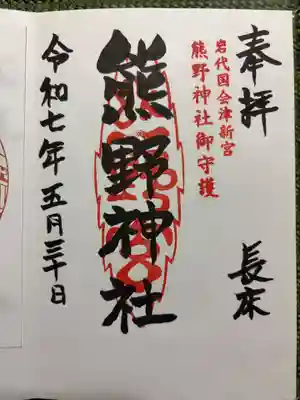 奉拝
長床
岩代国会津新宮
熊野神社御守護
熊野神社
令和七年五月三十日